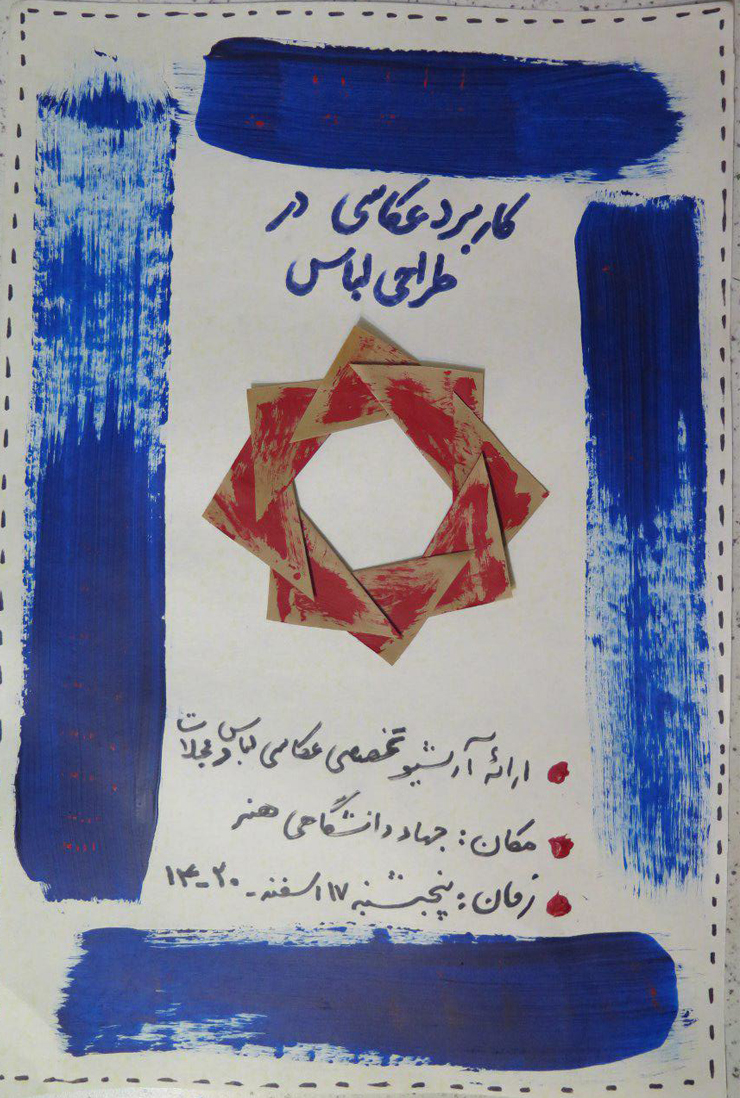 کاربرد عکاسی در
طراحی لباس
ارائه آرشیو تخصصی عکاسی لباس و مجلات
مکان: جهاد دانشگاهی هنر
زمان: پنجشنبه ۱۷ اسفند - ۲۰-۱۴